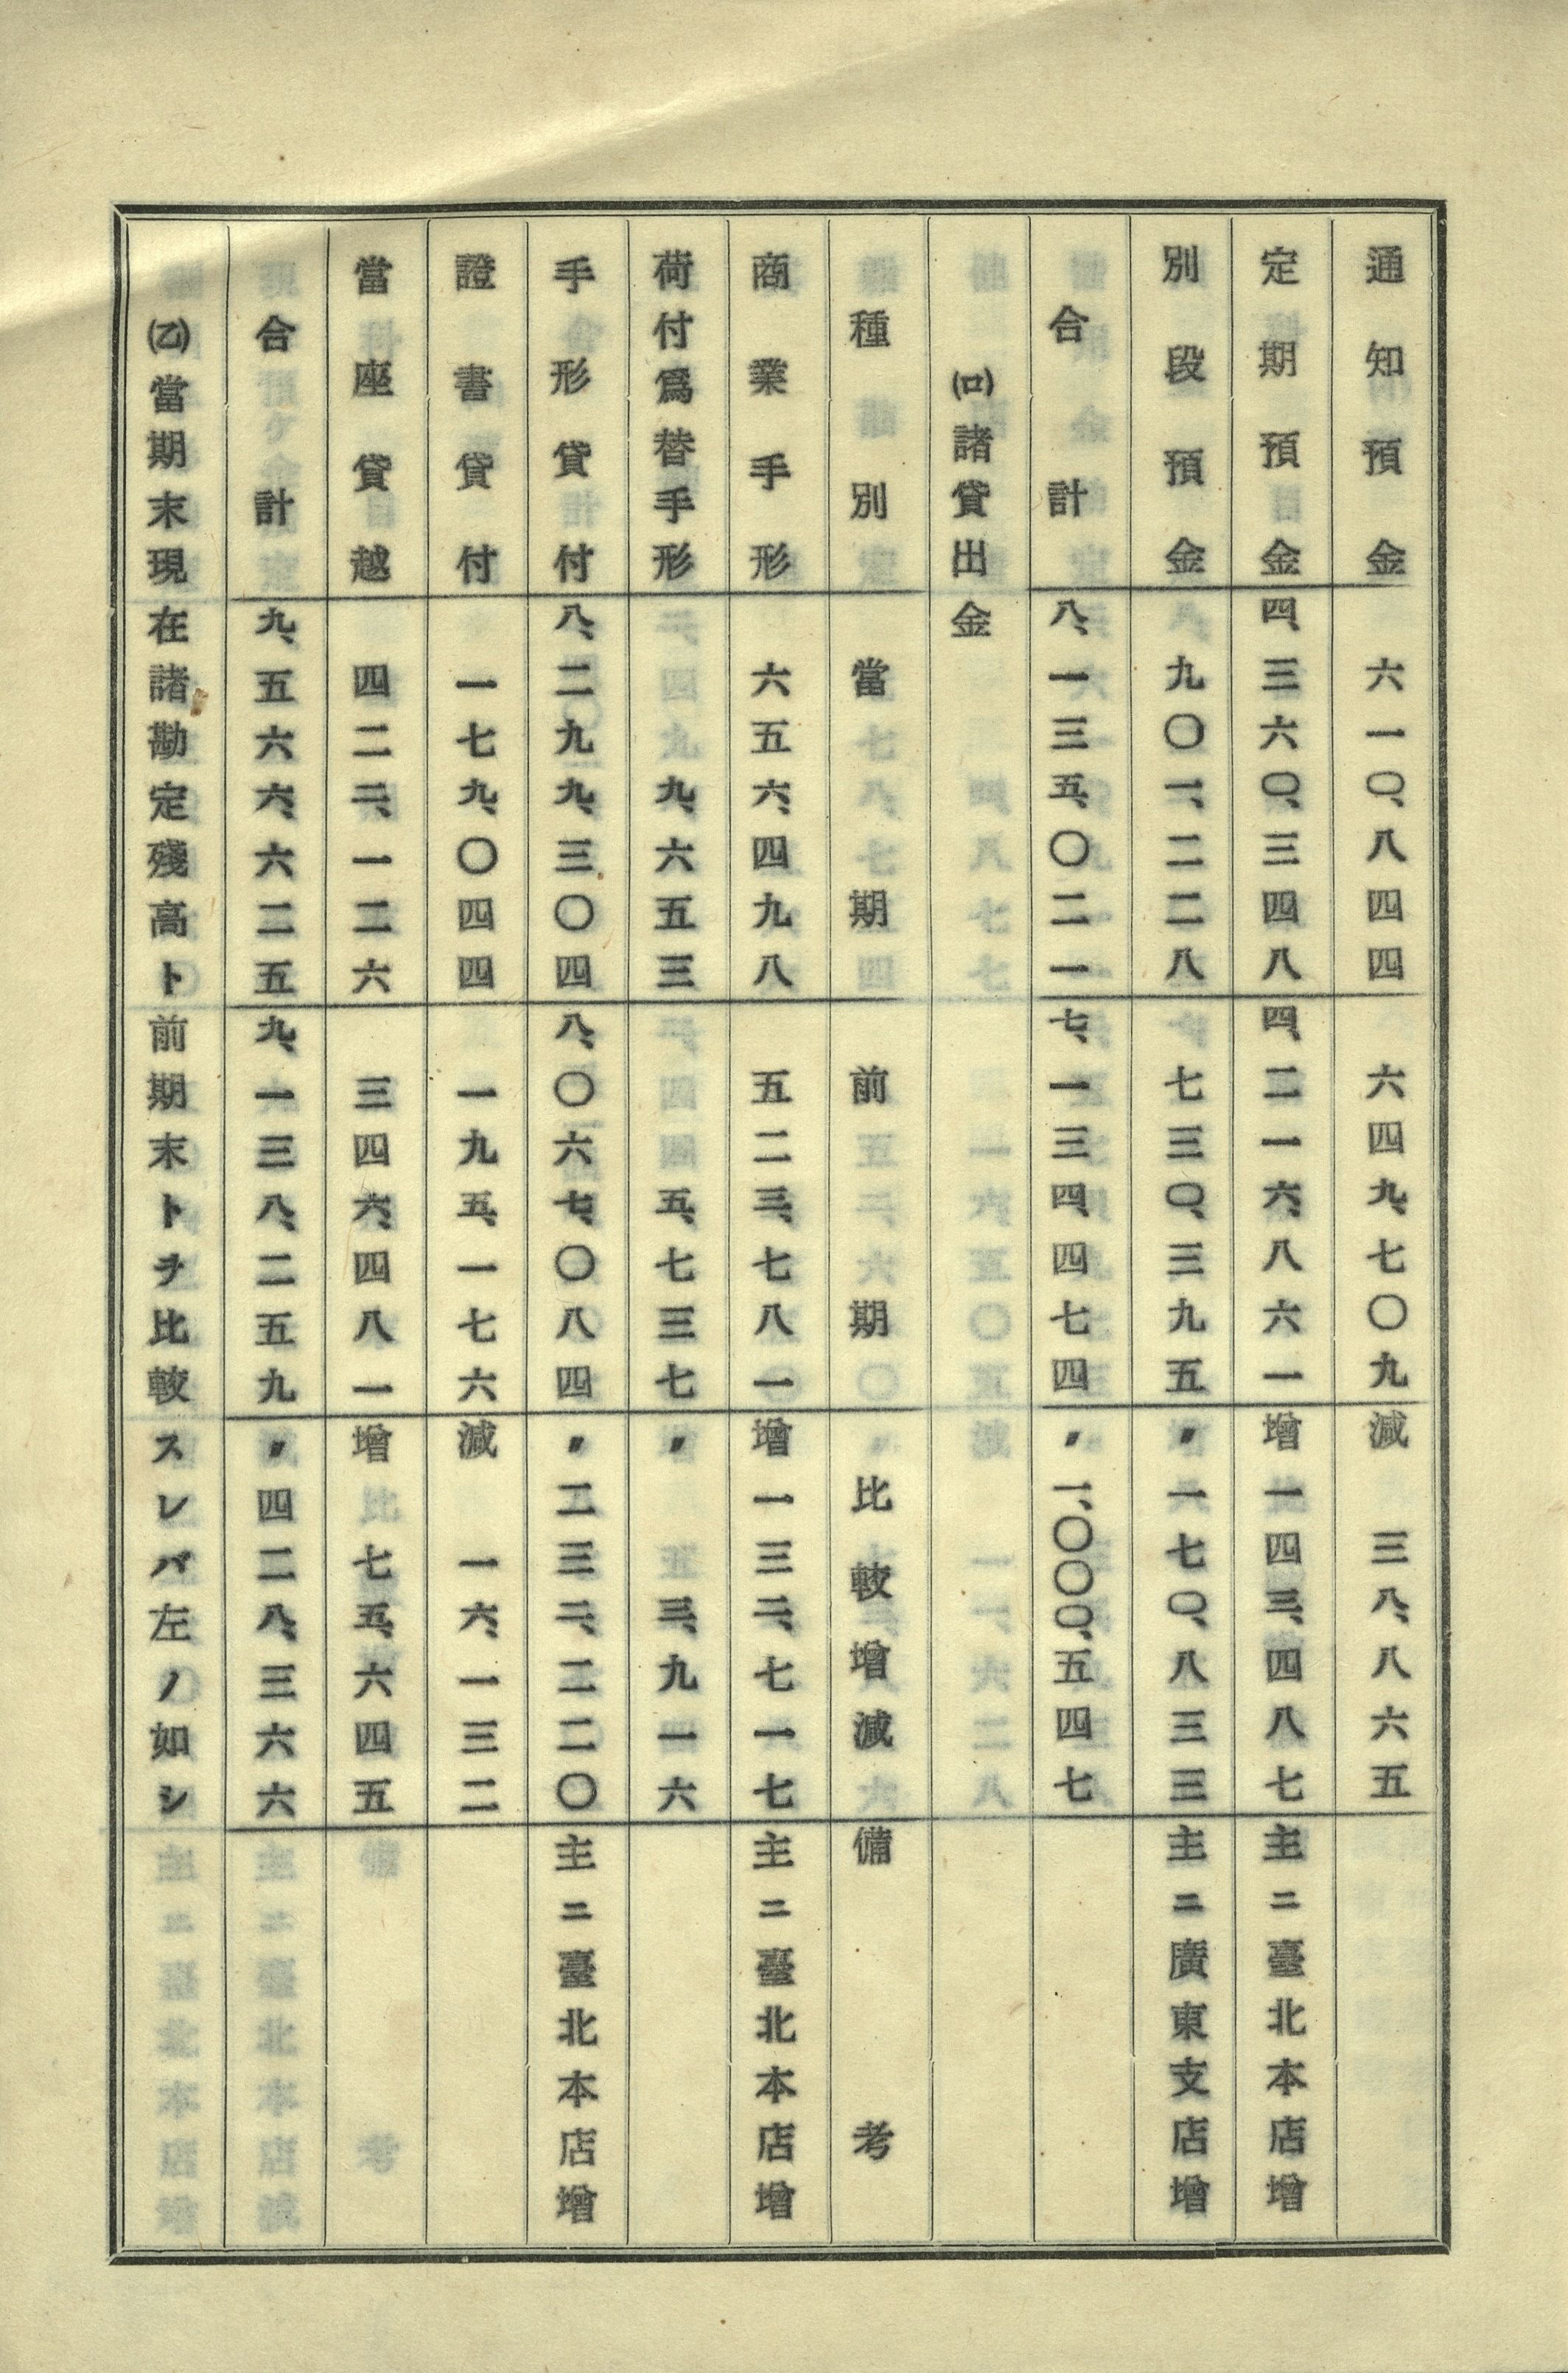 通知預金 六一〇、八四四 六四九、七〇九 減 三八、八六五
定期預金 四、三六〇、三四八 四、二一六、八六一 增 一四三、四八七 主ニ臺北本店增
別段預金 九〇一、二二八 七三〇、三九五 〃 一七〇、八三三 主ニ廣東支店增
合計 八、一三五、〇二一 七、一三四、四七四 〃 一、〇〇〇、五四七
(ロ)諸貸出金
種別 當期 前期 比較增減 備考
商業手形 六五六、四九八 五二三、七八一 增 一三二、七一七 主ニ臺北本店增
荷付爲替手形 九、六五三 五、七三七 〃 三、九一六
手形貸付 八、二九九、三〇四 八、〇六七、〇八四 〃 二三二、二二〇 主ニ臺北本店增
證書貸付 一七九、〇四四 一九五、一七六 減 一六、一三二
當座貸越 四二二、一二六 三四六、四八一 增 七五、六四五
合計 九、五六六、六二五 九、一三八、二五九 〃 四二八、三六六
(乙)當期末現在諸勘定殘高ト前期末トヲ比較スレバ左ノ如シ